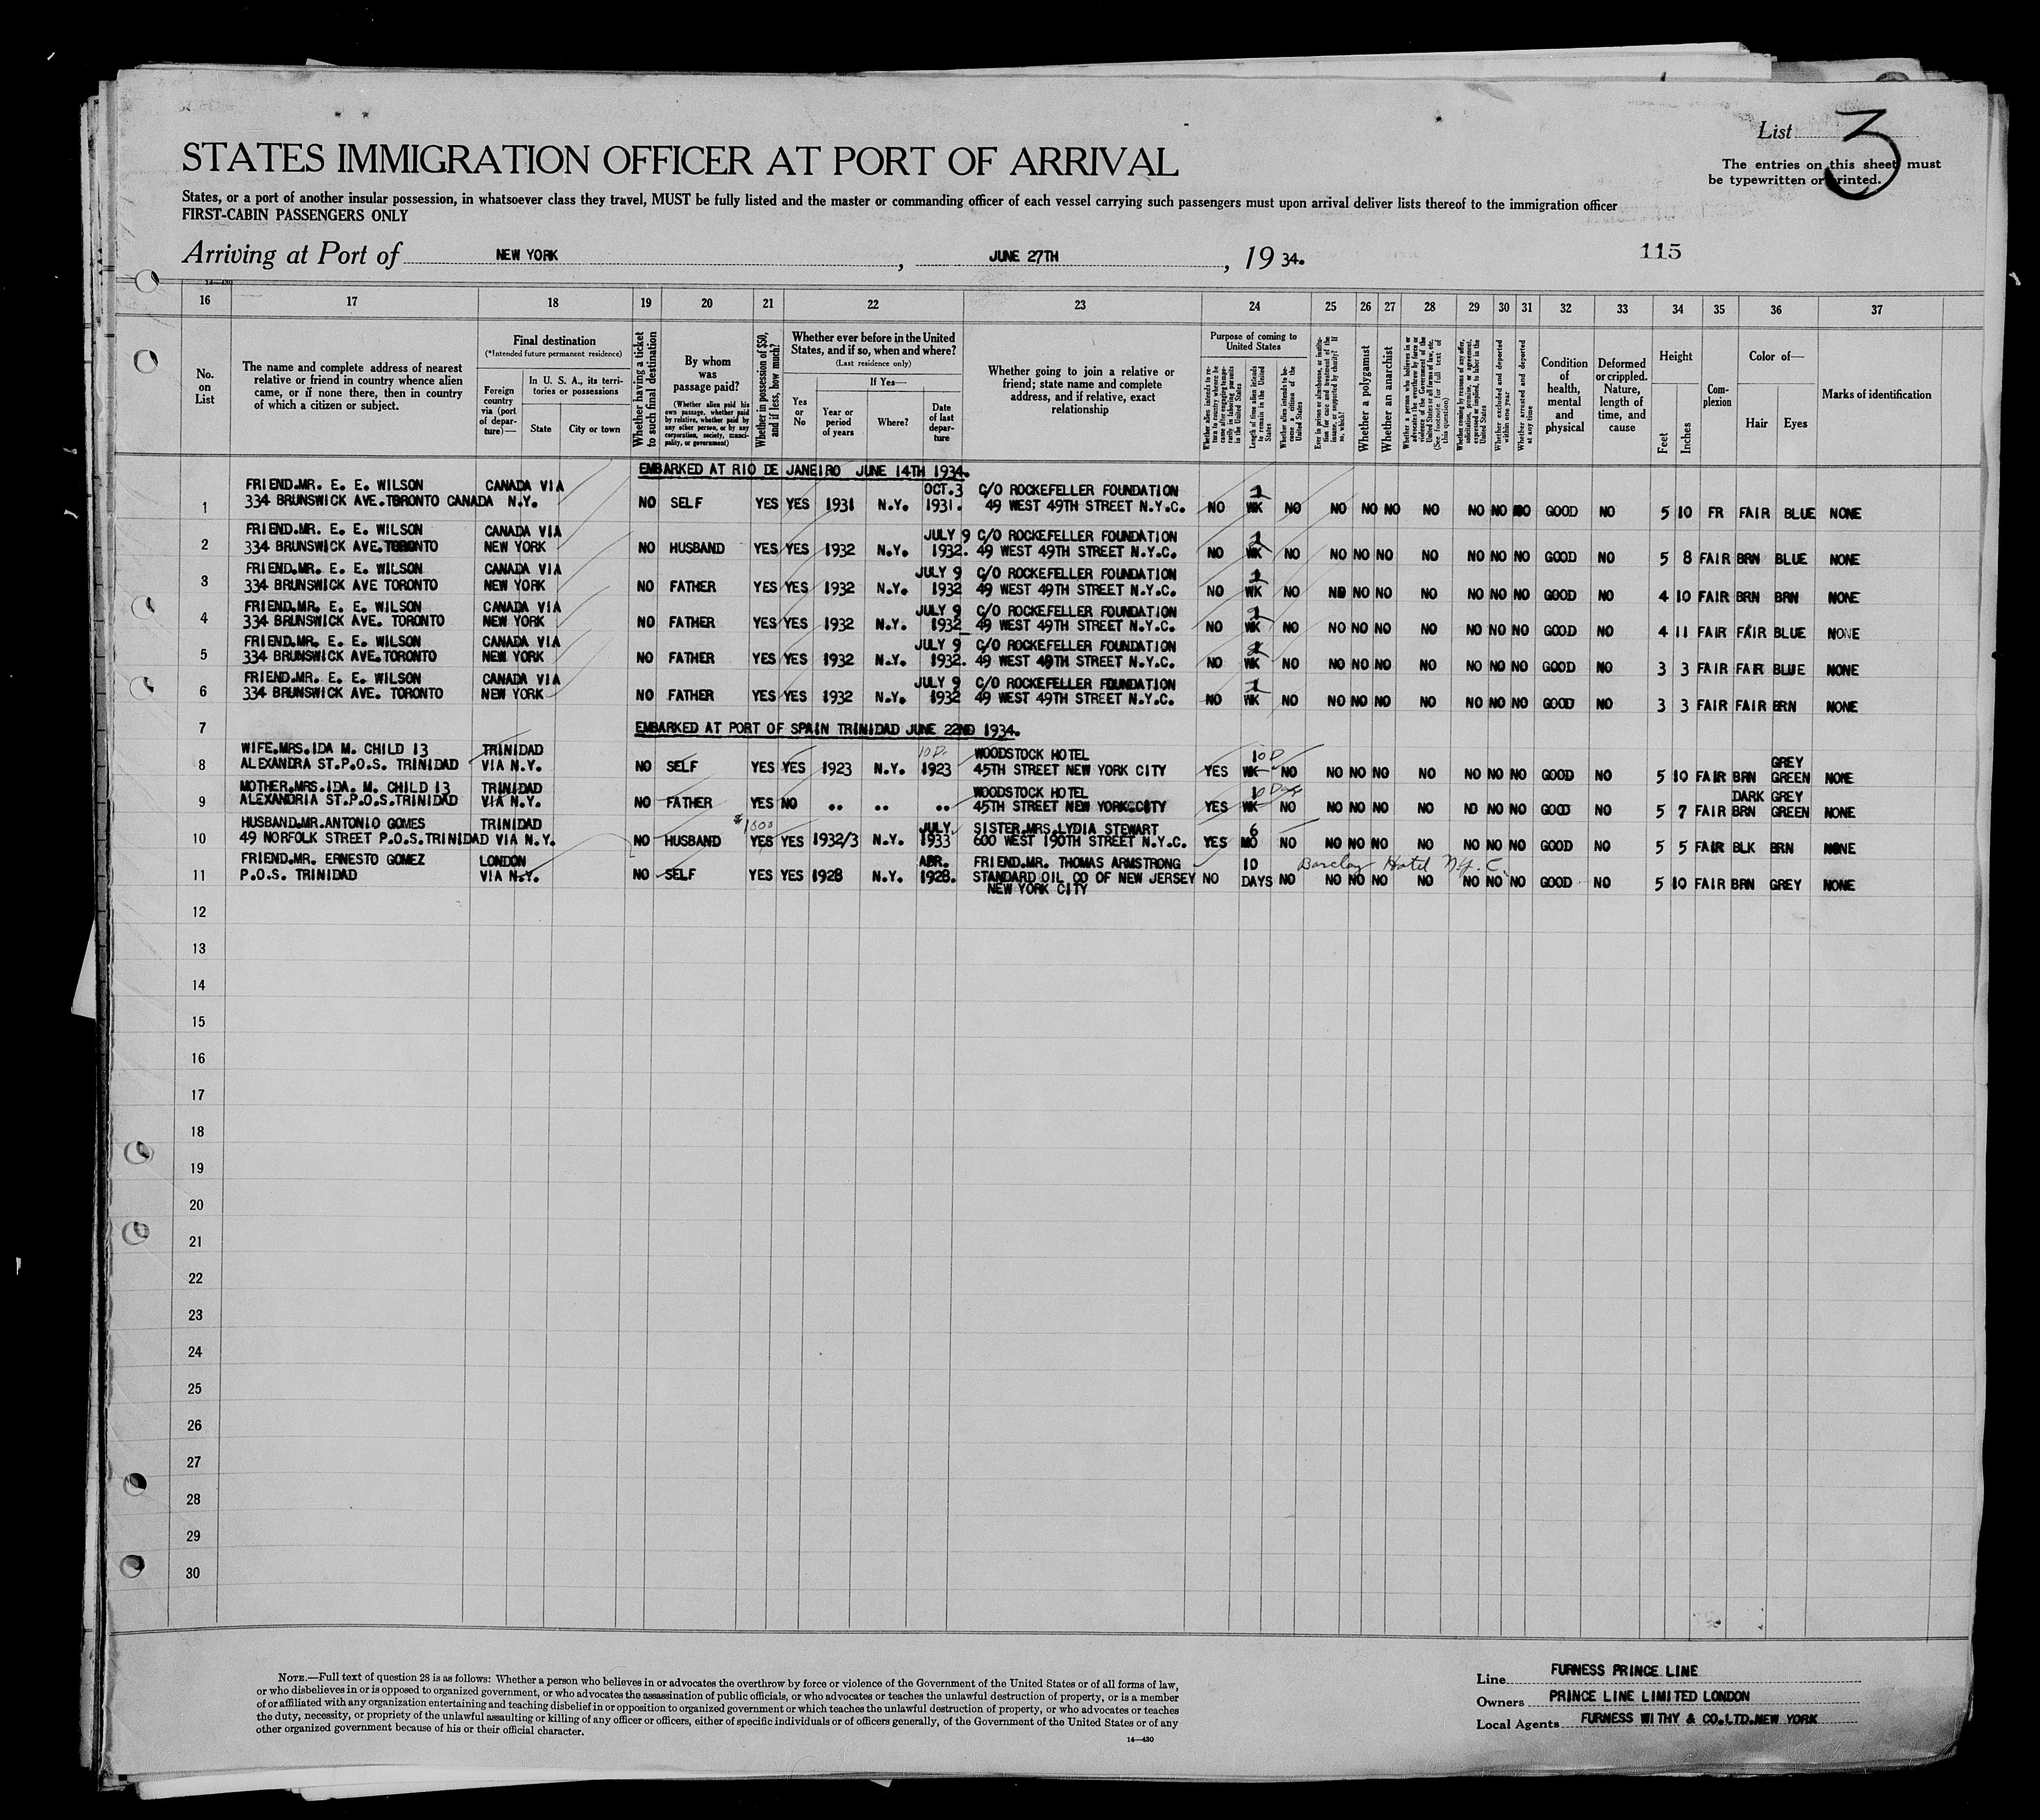 List 3
STATES IMMIGRATION OFFICER AT PORT OF ARRIVAL
The entries on this sheet must
be typewritten or printed.
States, or a port of another insular possession, in whatsoever class they travel, MUST be fully listed and the master or commanding officer of each vessel carrying such passengers must upon arrival deliver lists thereof to the immigration officer
FIRST-CABIN PASSENGERS ONLY
Arriving at Port of NEW YORK, JUNE 27TH, 1934.
115
14—430
16 17 18 19 20 21 22 23 24 25 26 27 28 29 30 31 32 33 34 35 36 37
No. on List
The name and complete address of nearest relative or friend in country whence alien came, or if none there, then in country of which a citizen or subject.
Final destination
(*Intended future permanent residence)
Foreign country via (port of departure)—
In U. S. A., its territories or possessions
State
City or town
Whether having a ticket to such final destination
By whom was passage paid?
(Whether alien paid his own passage, whether paid by relative, whether paid by any other person, or by any corporation, society, municipality, or government)
Whether in possession of $50, and if less, how much?
Whether ever before in the United States, and if so, when and where?
(Last residence only)
Yes or No
If Yes—
Year or period of years
Where?
Date of last departure
Whether going to join a relative or friend; state name and complete address, and if relative, exact relationship
Purpose of coming to United States
Whether alien intends to return to country whence he came after engaging temporarily in laboring pursuits in the United States
Length of time alien intends to remain in the United States
Whether alien intends to become a citizen of the United States
Ever in prison or almshouse, or institution for care and treatment of the insane, or supported by charity? If so, which?
Whether a polygamist
Whether an anarchist
Whether a person who believes in or advocates the overthrow by force or violence of the Government of the United States or all forms of law, etc. (See footnote for full text of this question)
Whether coming by reasons of any offer, solicitation, promise, or agreement, expressed or implied, to labor in the United States
Whether excluded and deported within one year
Whether arrested and deported at any time
Condition of health, mental and physical
Deformed or crippled. Nature, length of time, and cause
Height
Feet
Inches
Complexion
Color of—
Hair
Eyes
Marks of identification
EMBARKED AT RIO DE JANEIRO JUNE 14TH 1934.
FRIEND.MR. E. E. WILSON CANADA VIA OCT.3 C/O ROCKEFELLER FOUNDATION 1
1 334 BRUNSWICK AVE.TORONTO CANADA N.Y. NO SELF YES YES 1931 N.Y. 1931. 49 WEST 49TH STREET N.Y.C. NO WK NO NO NO NO NO NO NO NO GOOD NO 5 10 FR FAIR BLUE NONE
FRIEND.MR. E. E. WILSON CANADA VIA JULY 9 C/O ROCKEFELLER FOUNDATION 1
2 334 BRUNSWICK AVE.TORONTO NEW YORK NO HUSBAND YES YES 1932 N.Y. 1932. 49 WEST 49TH STREET N.Y.C. NO WK NO NO NO NO NO NO NO NO GOOD NO 5 8 FAIR BRN BLUE NONE
FRIEND.MR. E. E. WILSON CANADA VIA JULY 9 C/O ROCKEFELLER FOUNDATION 1
3 334 BRUNSWICK AVE TORONTO NEW YORK NO FATHER YES YES 1932 N.Y. 1932 49 WEST 49TH STREET N.Y.C. NO WK NO NO NO NO NO NO NO NO GOOD NO 4 10 FAIR BRN BRN NONE
FRIEND.MR. E. E. WILSON CANADA VIA JULY 9 C/O ROCKEFELLER FOUNDATION 1
4 334 BRUNSWICK AVE. TORONTO NEW YORK NO FATHER YES YES 1932 N.Y. 1932 49 WEST 49TH STREET N.Y.C. NO WK NO NO NO NO NO NO NO NO GOOD NO 4 11 FAIR FAIR BLUE NONE
FRIEND.MR. E. E. WILSON CANADA VIA JULY 9 C/O ROCKEFELLER FOUNDATION
5 334 BRUNSWICK AVE.TORONTO NEW YORK NO FATHER YES YES 1932 N.Y. 1932. 49 WEST 49TH STREET N.Y.C. NO WK NO NO NO NO NO NO NO NO GOOD NO 3 3 FAIR FAIR BLUE NONE
FRIEND.MR. E. E. WILSON CANADA VIA JULY 9 C/O ROCKEFELLER FOUNDATION 1
6 334 BRUNSWICK AVE. TORONTO NEW YORK NO FATHER YES YES 1932 N.Y. 1932 49 WEST 49TH STREET N.Y.C. NO WK NO NO NO NO NO NO NO NO GOOD NO 3 3 FAIR FAIR BRN NONE
7 EMBARKED AT PORT OF SPAIN TRINIDAD JUNE 22ND 1934.
WIFE.MRS.IDA M. CHILD 13 TRINIDAD 10 D. WOODSTOCK HOTEL 10 D GREY
8 ALEXANDRA ST.P.O.S. TRINIDAD VIA N.Y. NO SELF YES YES 1923 N.Y. 1923 45TH STREET NEW YORK CITY YES WK NO NO NO NO NO NO NO NO GOOD NO 5 10 FAIR BRN GREEN NONE
MOTHER.MRS.IDA. M. CHILD 13 TRINIDAD WOODSTOCK HOTEL 10 Days DARK GREY
9 ALEXANDRIA ST.P.O.S.TRINIDAD VIA N.Y. NO FATHER YES NO .. .. .. 45TH STREET NEW YORK.CITY YES WK NO NO NO NO NO NO NO NO GOOD NO 5 7 FAIR BRN GREEN NONE
HUSBAND.MR.ANTONIO GOMES TRINIDAD $1000 JULY SISTER.MRS.LYDIA STEWART 6
10 49 NORFOLK STREET P.O.S.TRINIDAD VIA N.Y. NO HUSBAND YES YES 1932/3 N.Y. 1933 600 WEST 190TH STREET N.Y.C. YES MO NO NO NO NO NO NO NO NO GOOD NO 5 5 FAIR BLK BRN NONE
FRIEND.MR. ERNESTO GOMEZ LONDON APR. FRIEND.MR. THOMAS ARMSTRONG 10 Barclay Hotel N.Y.C.
11 P.O.S. TRINIDAD VIA N.Y. NO SELF YES YES 1928 N.Y. 1928. STANDARD OIL CO OF NEW JERSEY NO DAYS NO NO NO NO NO NO NO NO GOOD NO 5 10 FAIR BRN GREY NONE
NEW YORK CITY
12
13
14
15
16
17
18
19
20
21
22
23
24
25
26
27
28
29
30
NOTE.—Full text of question 28 is as follows: Whether a person who believes in or advocates the overthrow by force or violence of the Government of the United States or of all forms of law,
or who disbelieves in or is opposed to organized government, or who advocates the assassination of public officials, or who advocates or teaches the unlawful destruction of property, or is a member
of or affiliated with any organization entertaining and teaching disbelief in or opposition to organized government or which teaches the unlawful destruction of property, or who advocates or teaches
the duty, necessity, or propriety of the unlawful assaulting or killing of any officer or officers, either of specific individuals or of officers generally, of the Government of the United States or of any
other organized government because of his or their official character.
14—430
Line FURNESS PRINCE LINE
Owners PRINCE LINE LIMITED LONDON
Local Agents FURNESS WITHY & CO.LTD.NEW YORK